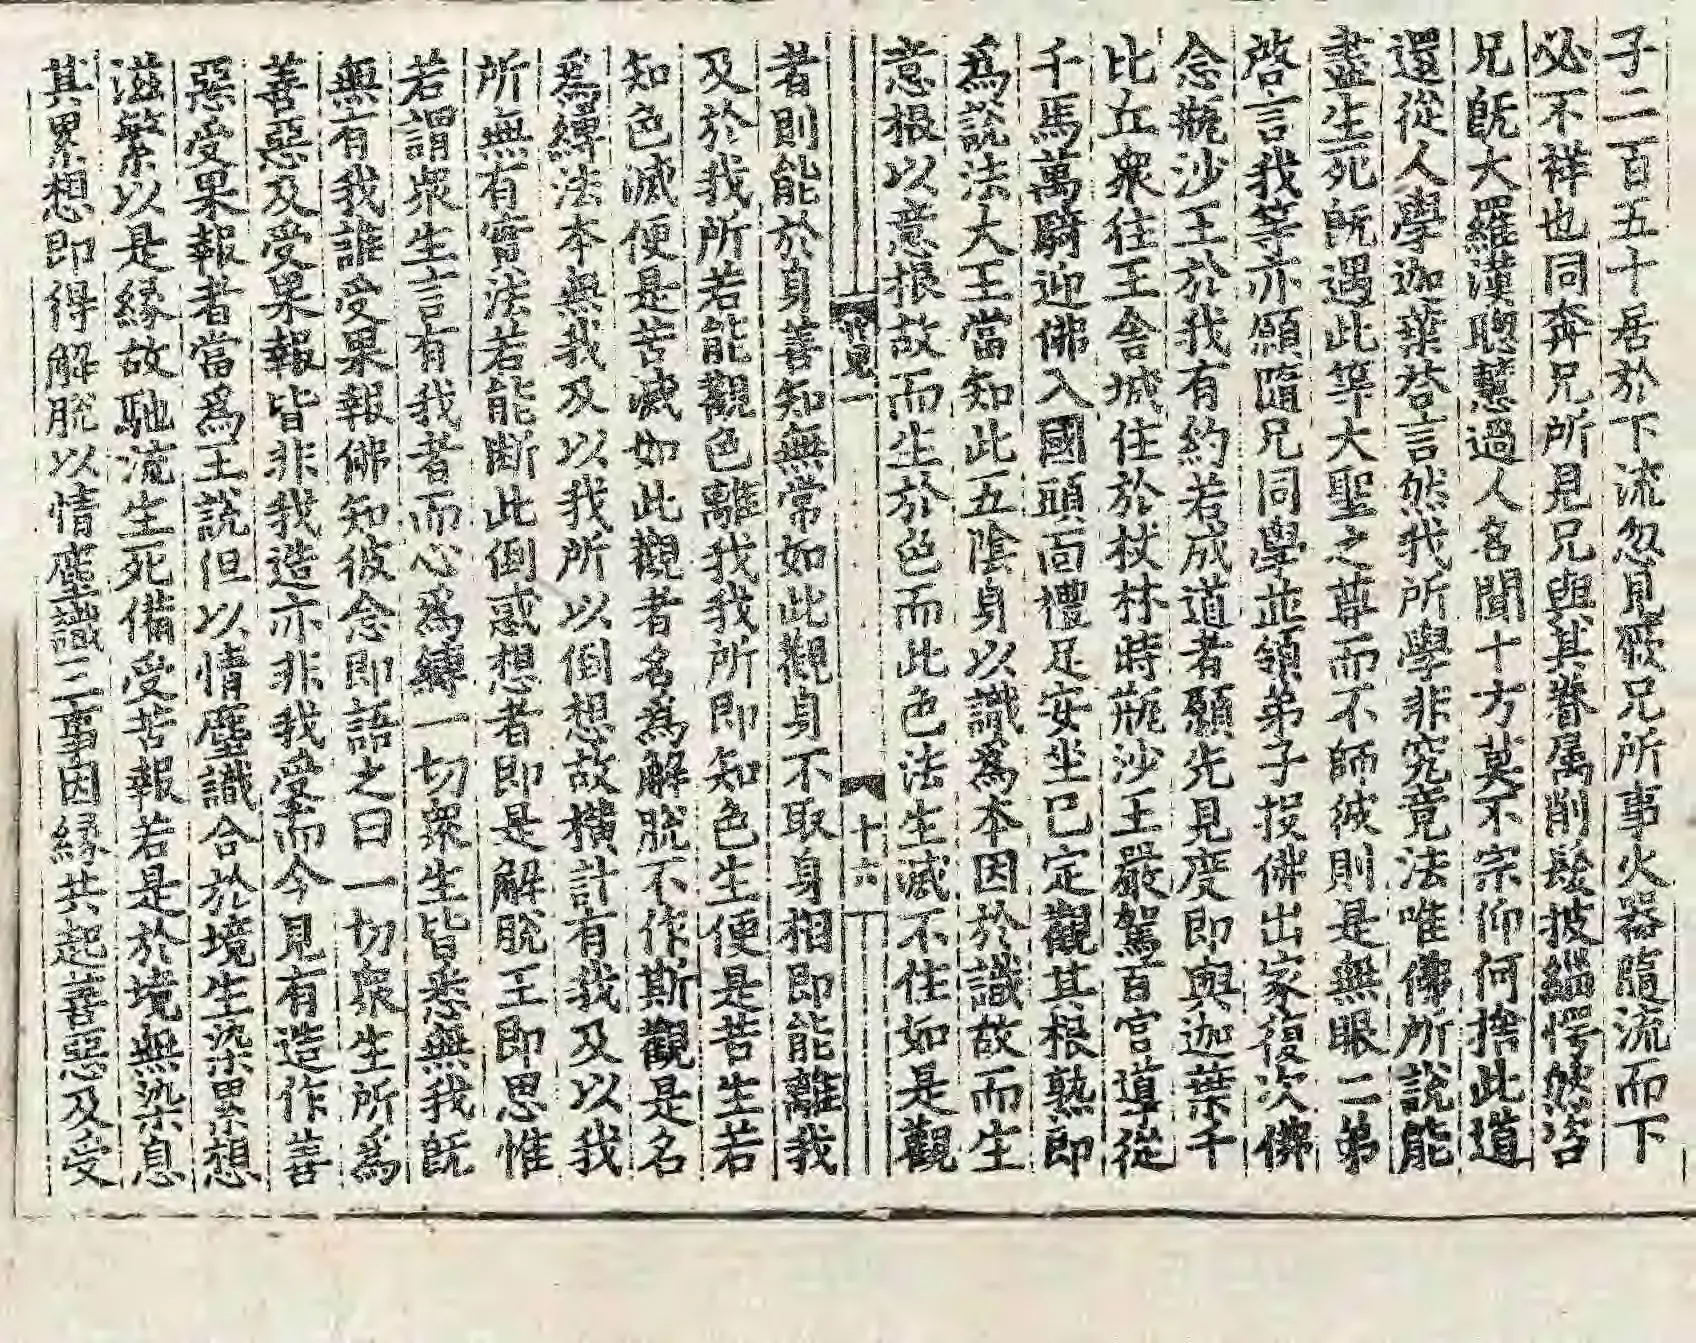 子二百五十居於下流忽見厥兄所事火器隨流而下
必不祥也同奔兄所見兄與其眷属削髮披緇愕然咨
兄旣大羅漢聰慧過人名聞十方莫不宗仰何捨此道
還從人學迦葉荅言然我所學非究竟法唯佛所說能
盡生死旣遇此等大聖之尊而不師彼則是無眼二弟
啓言我等亦願隨兄同學並領弟子投佛出家復次佛
念瓶沙王於我有約若成道者願先見度即與迦葉千
比丘衆往王舍城住於杖林時瓶沙王嚴駕百官導從
千馬萬騎迎佛入國頭面禮足安坐已定觀其根熟即
爲說法大王當知此五陰身以識爲本因於識故而生
意根以意根故而生於色而此色法生滅不住如是觀
一
十六
者則能於身善知無常如此觀身不取身相即能離我
及於我所若能觀色離我我所即知色生便是苦生若
知色滅便是苦滅如此觀者名爲解脫不作斯觀是名
爲縛法本無我及以我所以倒想故橫計有我及以我
所無有實法若能斷此倒惑想者即是解脫王即思惟
若謂衆生言有我者而心爲縛一切衆生皆悉無我旣
無有我誰受果報佛知彼念即語之曰一切衆生所爲
善惡及受果報皆非我造亦非我受而今見有造作善
惡受果報者當爲王說但以情塵識合於境生染累想
滋繁以是緣故馳流生死備受苦報若是於境無染息
其累想即得解脫以情塵識三事因緣共起善惡及受